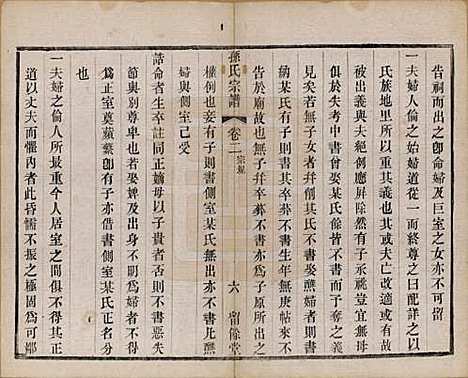 告祠而出之卽命婦及巨室之女亦不可留
一夫婦人倫之始婦道從一而終尊之曰配詳之以
氏族地里所以夫其義也其或夫亡改適或有大故
被出義已與夫絕例應屏除然有子承祧豈宜無母
俱於失考中書曾娶某氏餘皆不書一切夫娶之義
見矣若娶有子女者幷削其氏不書娶醮婦者則書
納某氏有子則書生卒葬不書生年無庚帖來不
告於廟故也無子幷卒葬不書亦爲子原所出以
孫氏宗譜
卷二
宗規
六
留餘堂
權例也妾有子則書側室某氏無出不書
婦與側室已受
誥命者生卒註同正嫡母以子貴者否則不書惡失
節與別尊卑也若娶婢及出婦爲妻者不
爲正室奠蘋蘩卽有子亦書側室某氏嫡庶之義
也
一夫婦之倫人所最重今人居室之間得其正
道以丈夫而憜婦內者此昏懦不振之極固爲可鄙